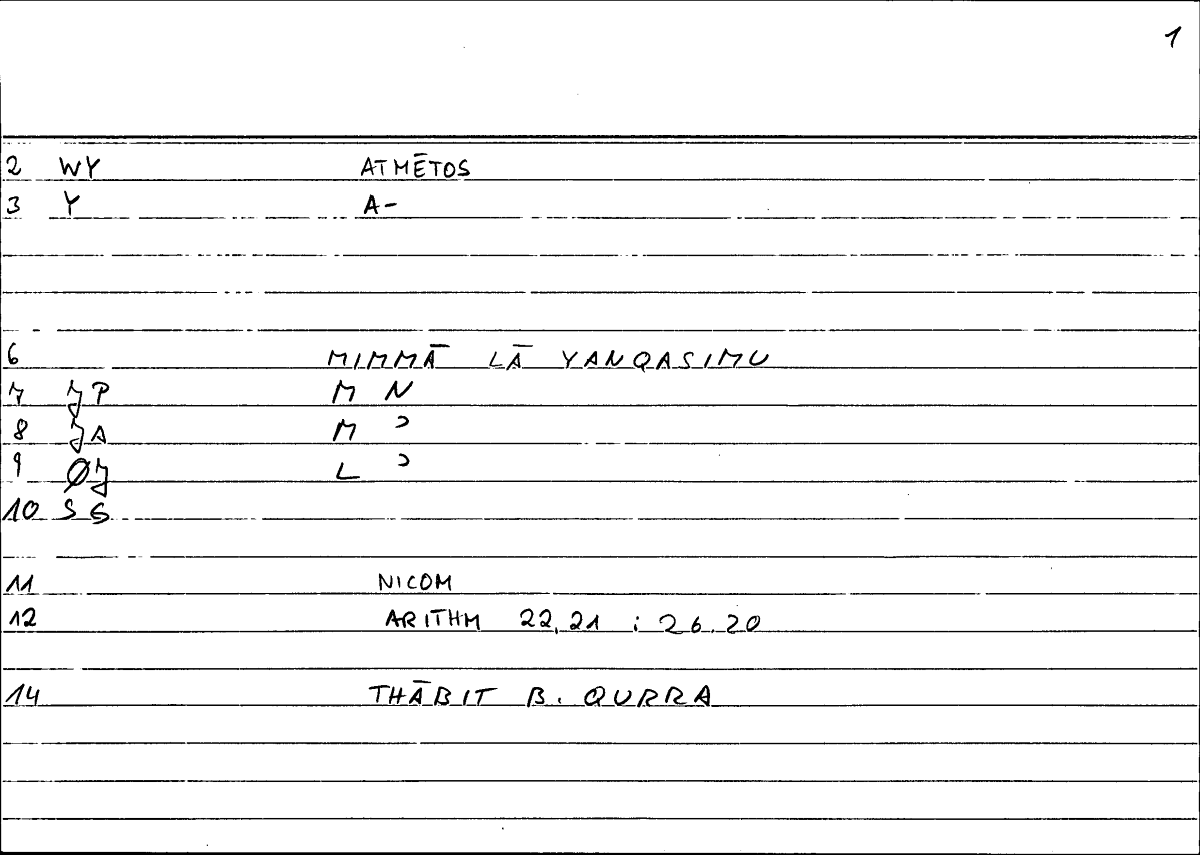 1
2 WY ATMĒTOS
3 Y A-
6 MIMMĀ LĀ YANQASIMU
7 P M N
8 A M ʾ
9 Ø L ʾ
10 S S
11 NICOM
12 ARITHM 22,21 ; 26.20
14 THĀBIT B. QURRA